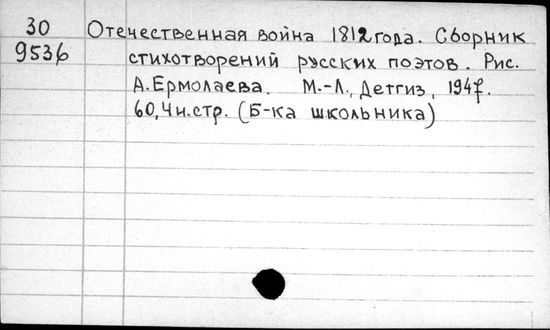 30 Отечественная война 1812 года. Сборник
9536 стихотворений русских поэтов. Рис.
А.Ермолаева. М.-Л., Детгиз, 1947.
60,4н.стр. (Б-ка школьника)